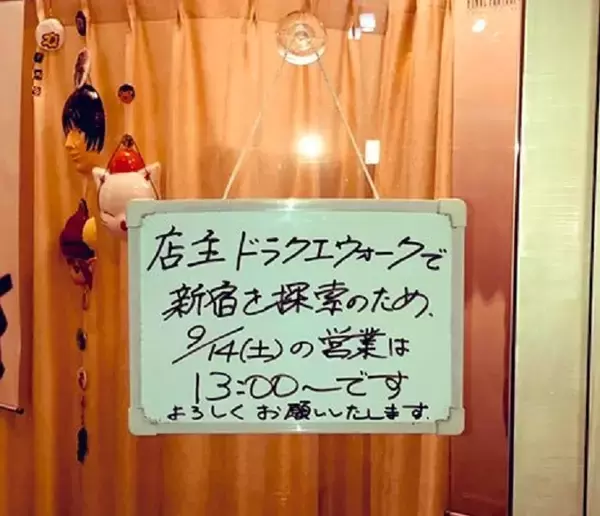 店主ドラクエウォークで
新宿を探索のため、
9/14(土)の営業は
13:00〜です
よろしくお願いいたします。